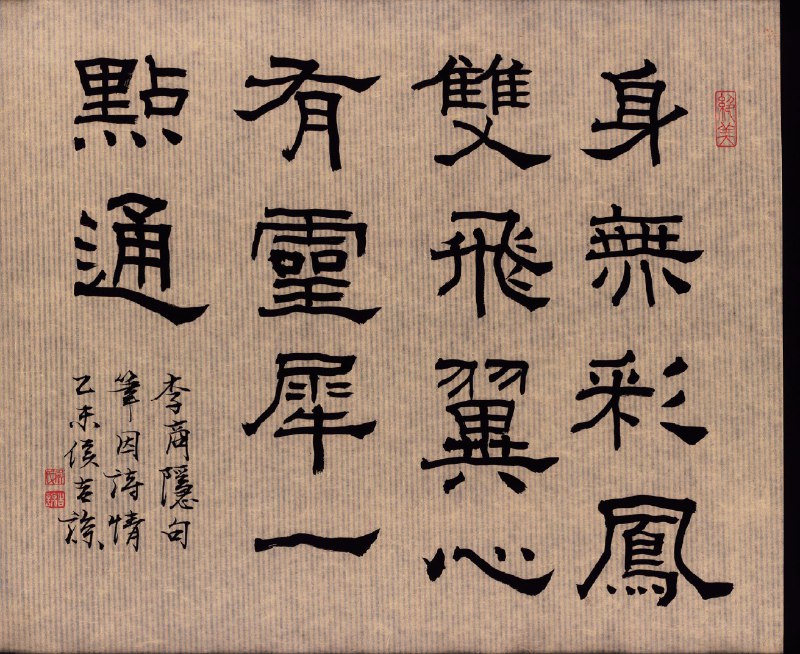 絕美
身無彩鳳
雙飛翼心
有靈犀一
點通
李商隱句
筆因詩情
乙未侯吉諒